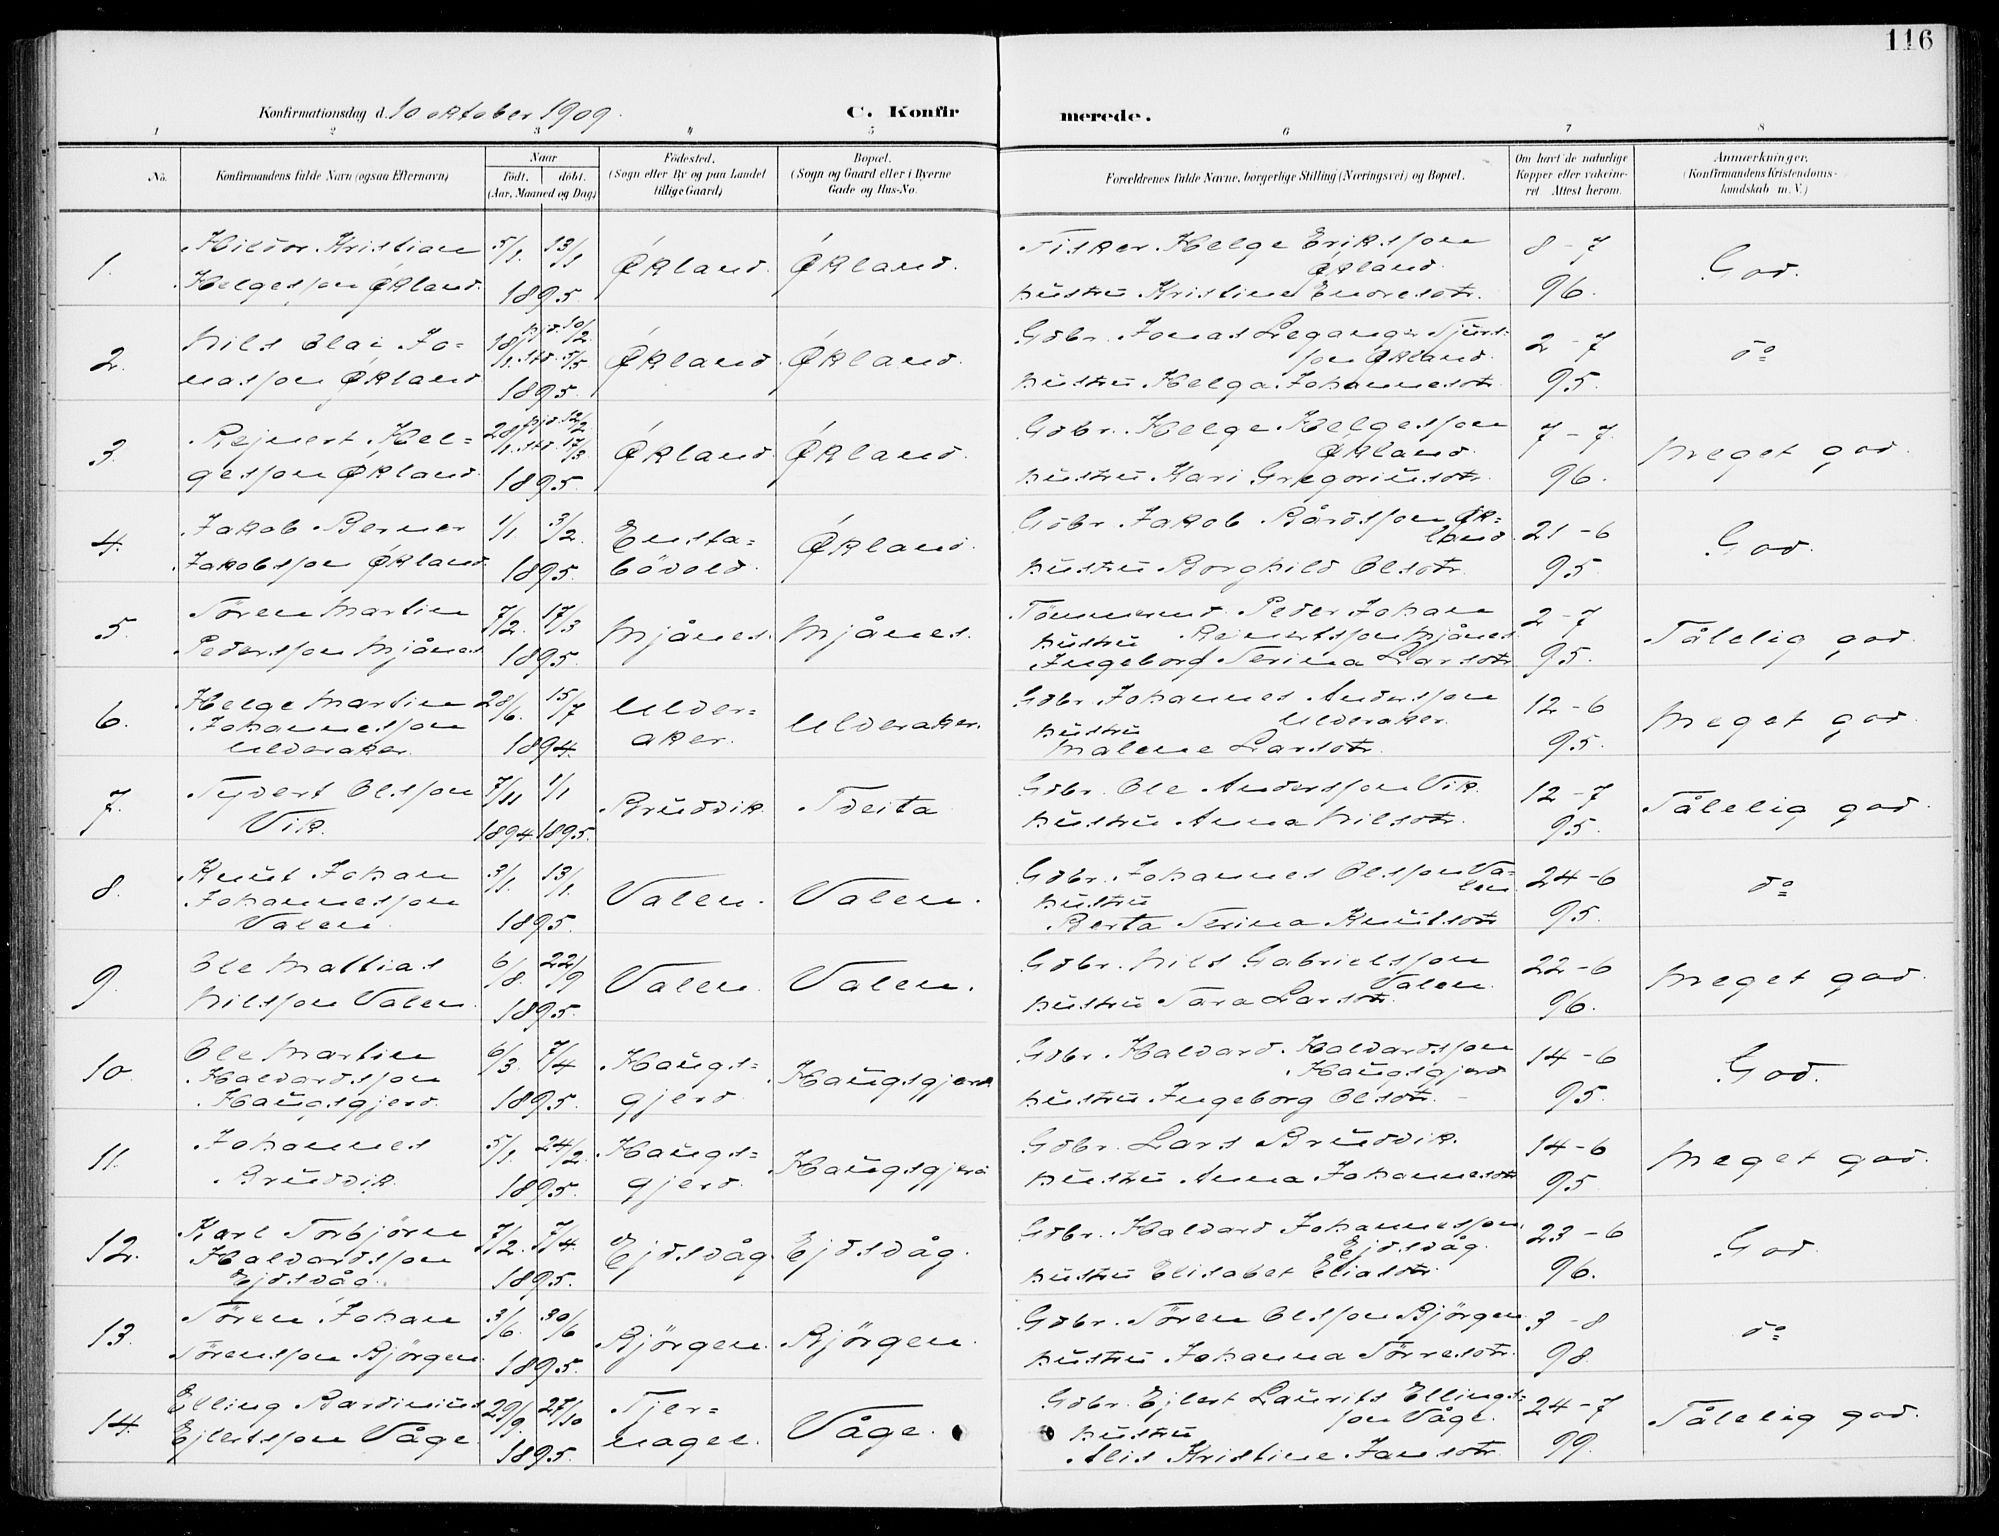 116
Konfirmationsdag d. 10 oktober 1909.
C. Konfir merede.
1 2 3 4 5 6 7 8
No.
Konfirmandens fulde Navn (ogsaa Efternavn)
Naar
födt. döbt.
(Aar, Maaned og Dag)
Födested.
(Sogn eller By og paa Landet
tillige Gaard)
Bopæl.
(Sogn og Gaard eller i Byerne
Gade og Hus-No.
Forældrenes fulde Navne, borgerlige Stilling (Næringsvei) og Bopæl.
Om havt de naturlige
Kopper eller vakcine-
ret Attest herom.
Anmærkninger.
(Konfirmandens Kristendoms-
kundskab m. V.)
1.
Hildor Kristian
Helgesson Økland.
5/1. 13/1
1895.
Økland.
Økland.
Fisker Helge Eriksson
Økland.
hustru Kristine Endresdtr.
8-7
96.
God.
2.
Nils Olai Jo-
nasson Økland
18/1. hjd. 10/2
std. 5/5
1895.
Økland.
Økland.
Gdbr. Jonas Legang Sjurs-
son Økland.
hustru Helga Johannesdtr.
2-7
95.
do
3.
Rejnert Hel-
gesson Økland.
28/1. hjd. 12/2
std. 17/3
1895.
Økland.
Økland.
Gdbr. Helge Helgesson
Økland.
hustru Kari Gregoriusdtr.
7-7.
96.
Meget god.
4.
Jakob Berner
Jakobsson Økland.
1/1. 3/2
1895.
Ensta-
bövold.
Økland.
Gdbr. Jakob Bårdsson Øk-
land.
hustru Borghild Olsdtr.
21-6
95.
God.
5.
Sören Martin
Pedersson Mjånes
7/2. 17/3
1895.
Mjånes.
Mjånes.
Tömmermd. Peder Johan
hustru Rejnertsson Mjånes
Ingeborg Serina Larsdtr
2-7
95.
Tålelig god.
6.
Helge Martin
Johannesson
Ulderaker.
28/6. 15/7
1894.
Ulder-
aker.
Ulderaker.
Gdbr. Johannes Andersson
Ulderaker.
hustru
Malene Larsdtr.
12-6
95.
Meget god.
7.
Syvert Olsson
Vik.
7/11 1/1
1894 1895.
Bruddvik.
Tveita
Gdbr. Ole Andersson Vik.
hustru Anna Nilsdtr.
12-7
95.
Tålelig god
8.
Knut Johan
Johannesson
Valen.
3/1. 13/1.
1895.
Valen.
Valen.
Gdbr. Johannes Olsson Va-
len
hustru
Berta Serina Knutsdtr
24-6
95.
do
9.
Ole Mattias
Nilsson Valen.
6/8. 22/9
1895.
Valen.
Valen.
Gdbr. Nils Gabrielsson
Valen.
hustru Sara Larsdtr.
22-6
96.
Meget god.
10.
Ole Martin
Haldardsson
Haugsgjerd.
6/3. 7/4
1895.
Haugs-
gjerd.
Haugsgjerd
Gdbr. Haldard Haldardsson
Haugsgjerd
hustru Ingeborg Olsdtr.
14-6
95.
God.
11.
Johannes
Bruddvik.
5/1. 24/2.
1895.
Haugs-
gjerd.
Haugsgjerd
Gdbr. Lars Bruddvik.
hustru Anna Johannesdtr
14-6
95
Meget god.
12.
Karl Torbjörn
Haldardsson
Ejdsvåg.
7/2. 7/4.
1895.
Ejdsvåg
Ejdsvåg.
Gdbr. Haldard Johannesson
Ejdsvåg.
hustru Elisabet Eliasdtr.
23-6
96.
God.
13.
Sören Johan
Sörensson Björgen.
3/6. 30/6
1895.
Björgen.
Björgen.
Gdbr. Sören Olsson Björgen
hustru Johanna Törresdtr.
3-8
98.
do
14.
Elling Bardinius
Ejlertsson Våge.
29/9. 27/10
1895.
Tjer-
nagel.
Våge.
Gdbr. Ejlert Laurits Ellings-
son Våge.
hustru
Alis Kristine Jansdtr.
24-7
99.
Tålelig god.